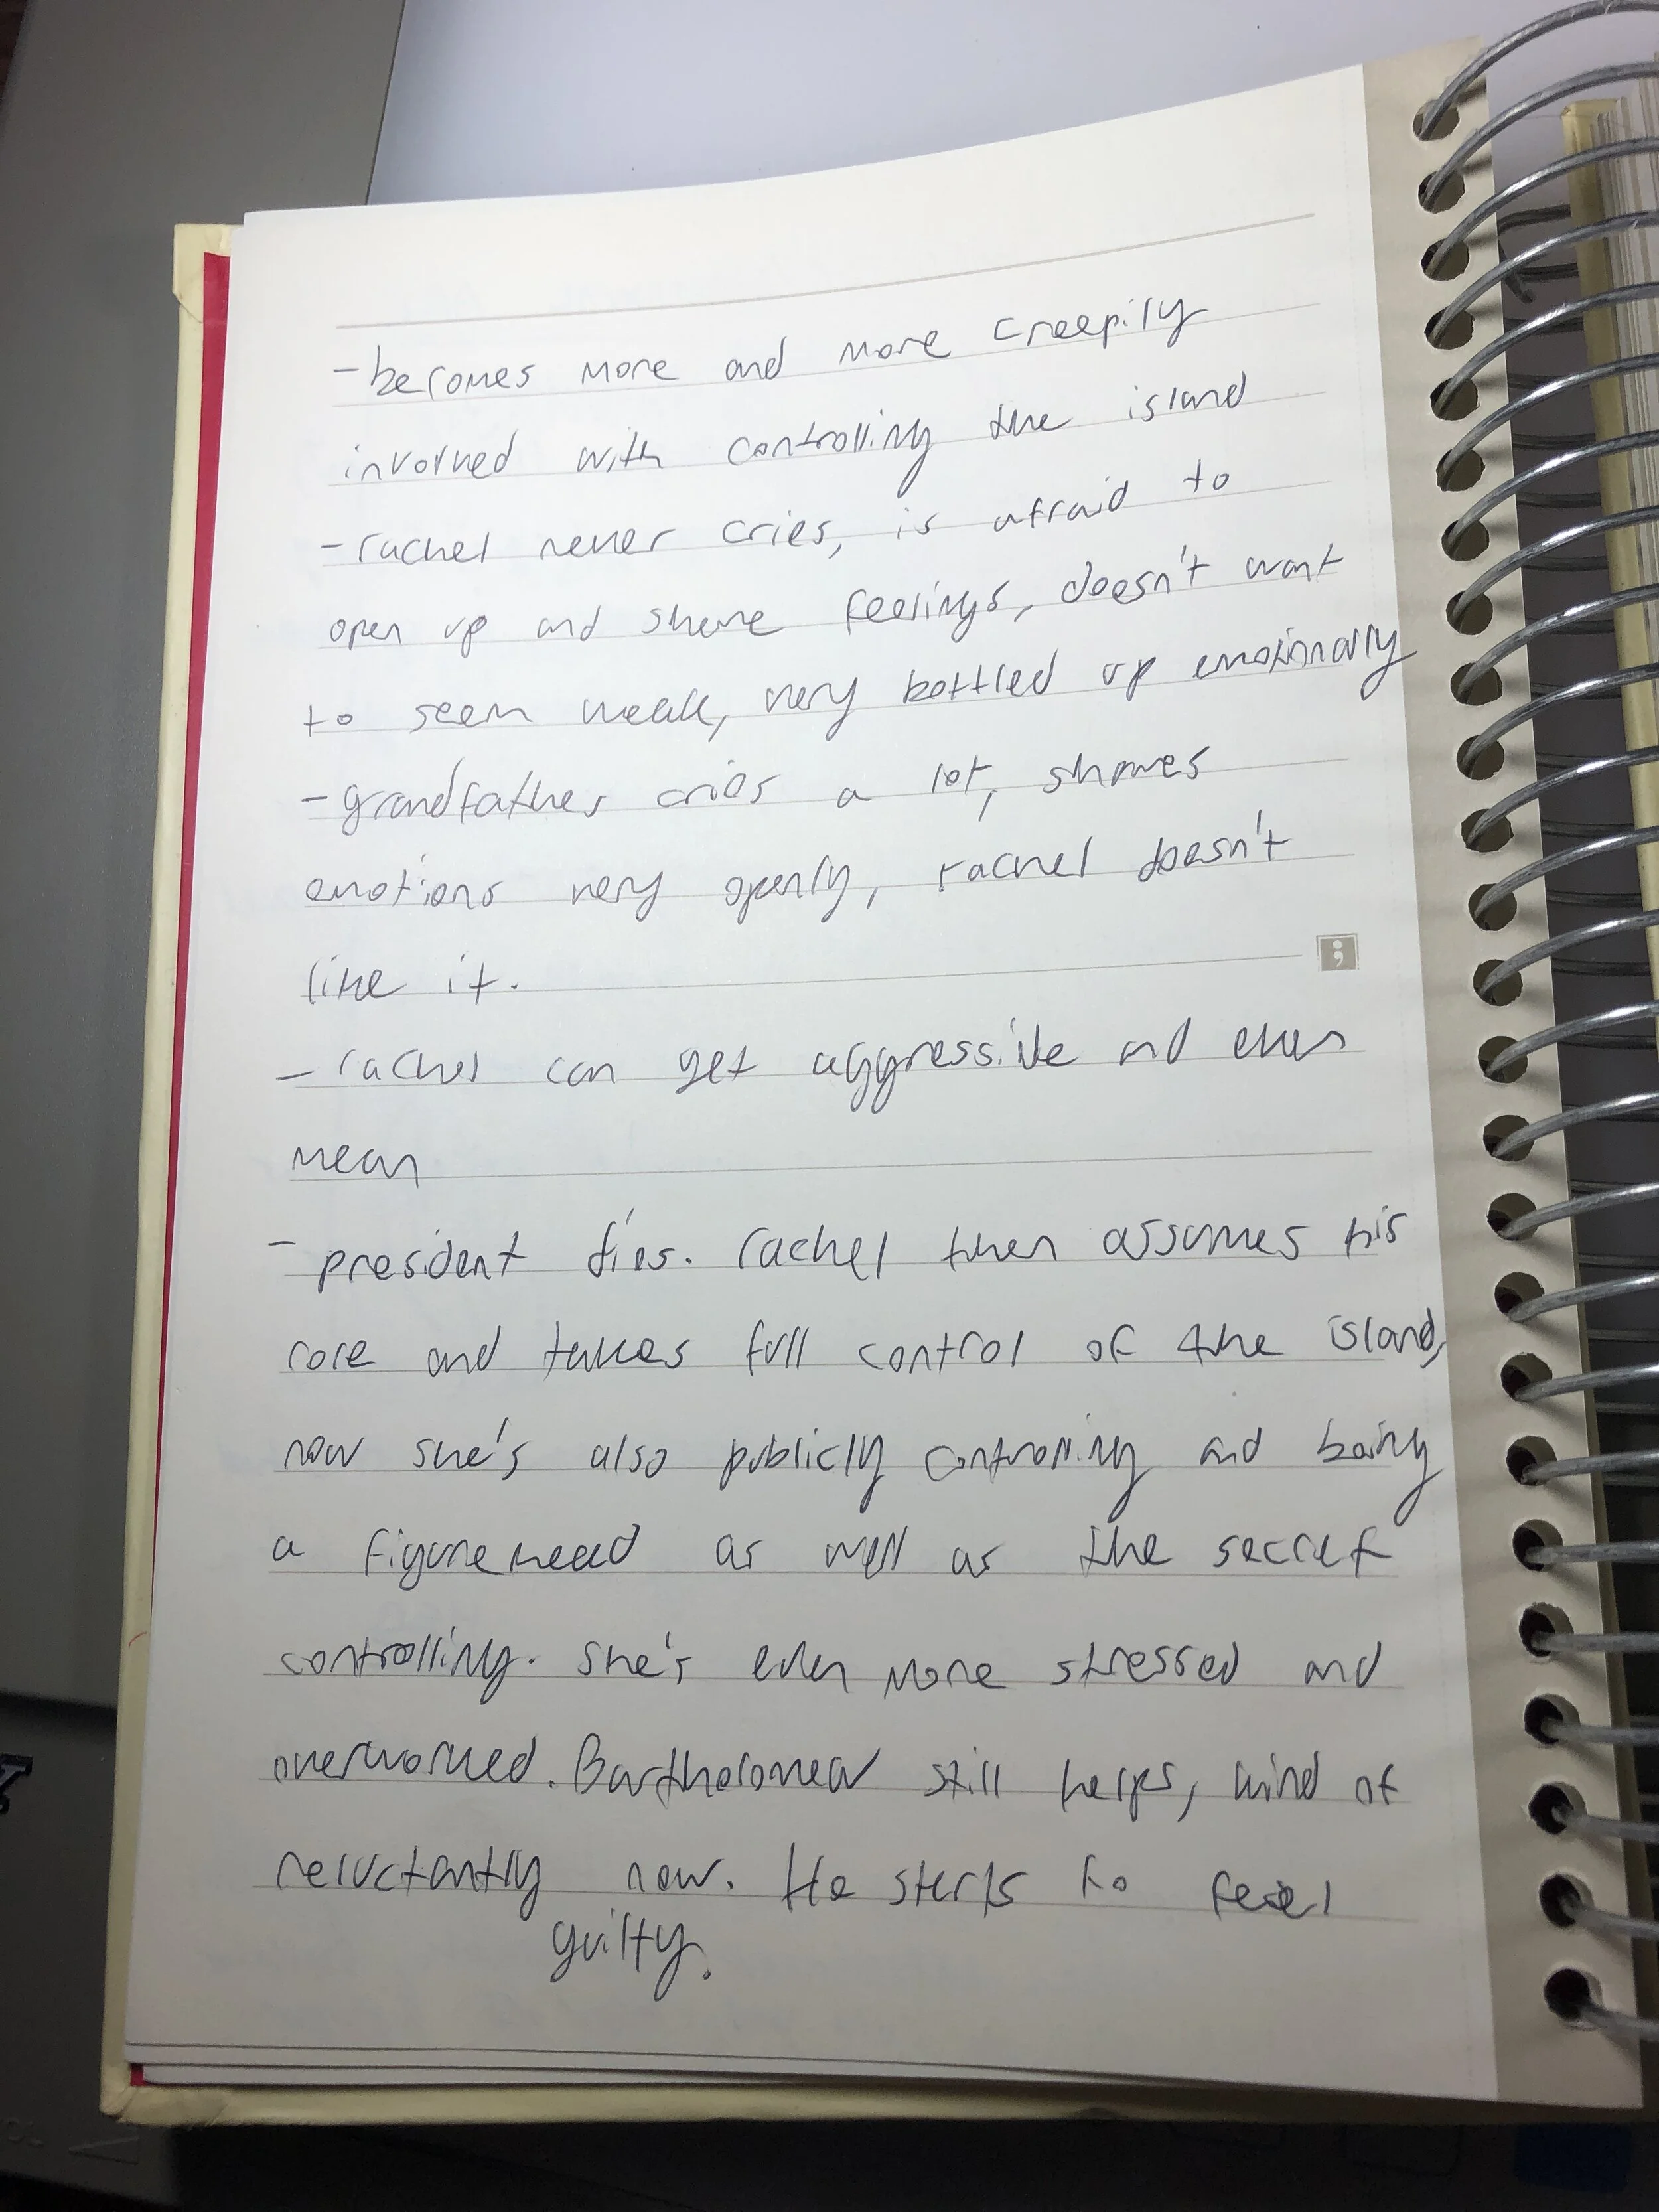 -becomes more and more creepily
involved with controlling the island
-rachel never cries, is afraid to
open up and share feelings, doesn't want
to seem weak, very bottled up emotionally
-grandfather cries a lot, shows
emotions very openly, rachel doesn't
like it.
;
-rachel can get aggressive and even
mean
-president dies. rachel then assumes his
role and takes full control of the island,
now she's also publicly controlling and being
a figurehead as well as the secret
controlling. She's even more stressed and
overworked. Bartholomew still helps, kind of
reluctantly now. He starts to feel
guilty.